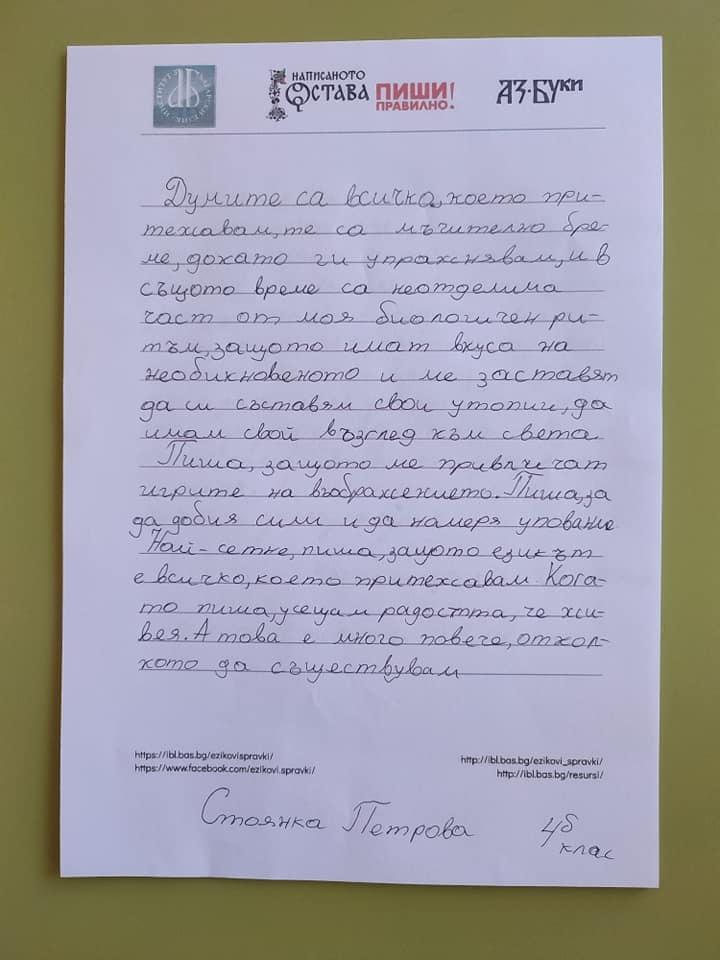 ИНСТИТУТ ЗА БЪЛГАРСКИ ЕЗИК
НАПИСАНОТО
ОСТАВА
ПИШИ
ПРАВИЛНО!
АЗ·БУКИ
Думите са всичко, което при-
тежавам, те са мъчително бре-
ме, докато ги упражнявам, и в
същото време са неотделима
част от моя биологичен ри-
тъм, защото имат вкуса на
необикновеното и ме заставят
да си съставям свои утопии, да
имам свой възглед към света.
Пиша, защото ме привличат
игрите на въображението. Пиша, за
да добия сили и да намеря упование.
Най-сетне, пиша, защото езикът
е всичко, което притежавам. Кога-
то пиша, усещам радостта, че жи-
вея. А това е много повече, откол-
кото да съществувам
https://ibl.bas.bg/ezikovispravki/
https://www.facebook.com/ezikovi.spravki/
http://ibl.bas.bg/ezikovi_spravki/
http://ibl.bas.bg/resursi/
Стоянка Петрова
4б
клас